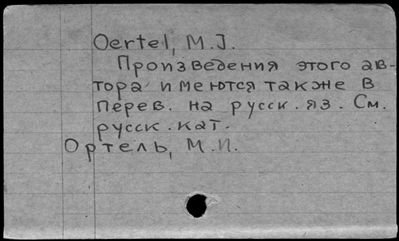 Oertel, M.J.
Произведения этого ав-
тора имеются также в
перев. на русск. яз. См.
русск. кат.
Ортель, М.И.